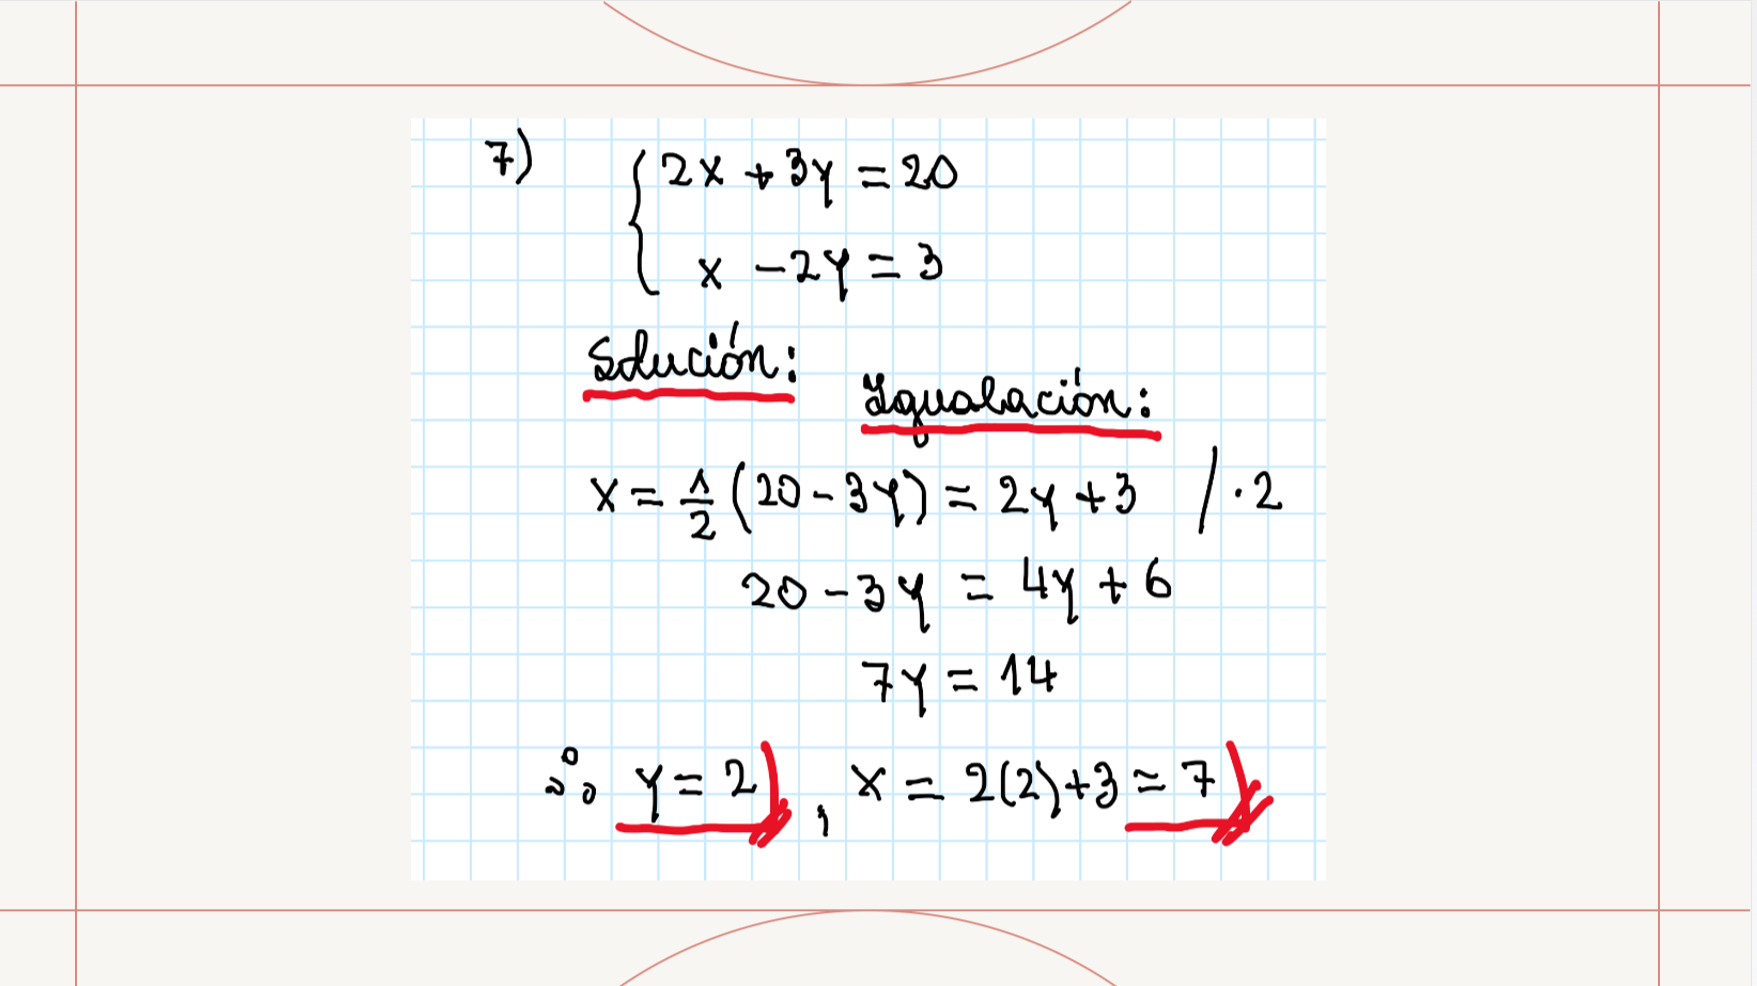 7) { 2x + 3y = 20
x - 2y = 3
Solución:
Igualación:
x = 1/2 (20 - 3y) = 2y + 3 / · 2
20 - 3y = 4y + 6
7y = 14
∴ y = 2 , x = 2(2)+3 = 7